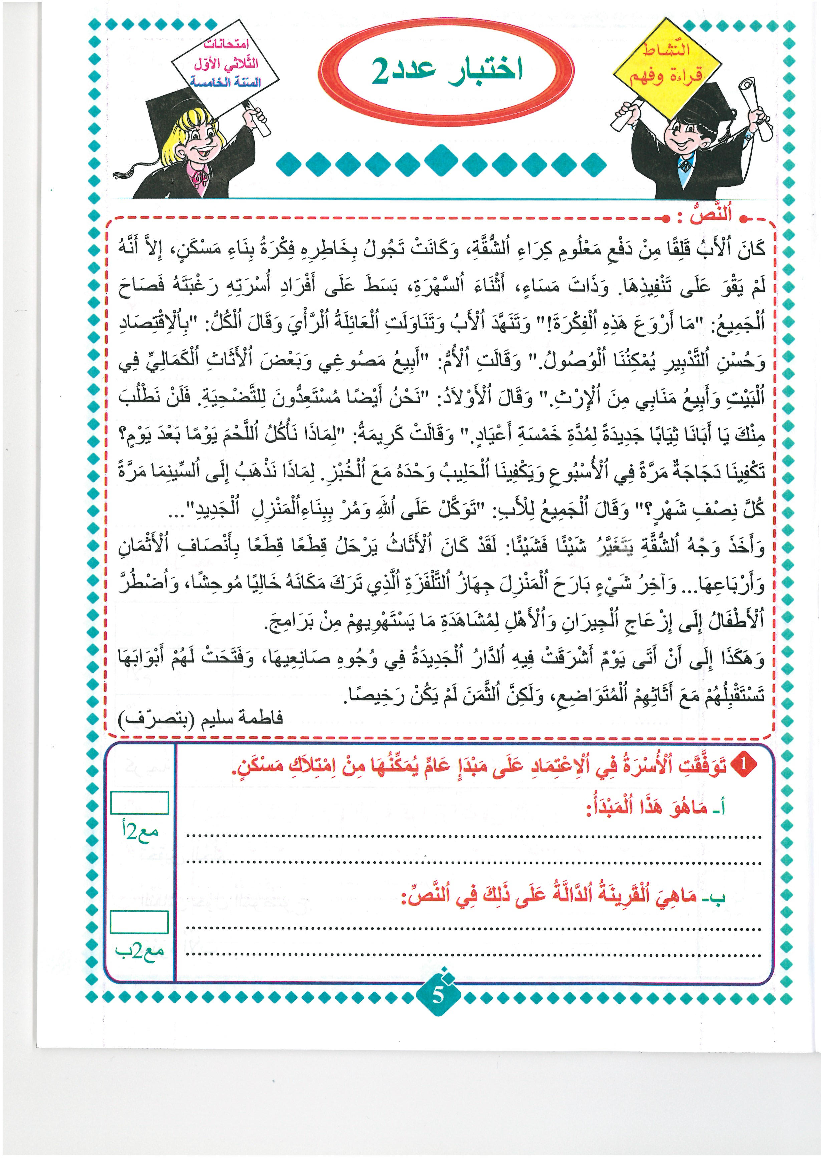 النّشاط
قراءة وفهم
اختبار عدد2
امتحانات
الثّلاثي الأوّل
السّنة الخامسة
اَلنَّصُّ :
كَانَ اُلْأَبُ قَلِقًا مِنْ دَفْعِ مَعْلُومِ كِرَاءِ اُلشُّقَّةِ، وَكَانَتْ تَجُولُ بِخَاطِرِهِ فِكْرَةُ بِنَاءِ مَسْكَنٍ، إِلاَّ أَنَّهُ
لَمْ يَقْوَ عَلَى تَنْفِيذِهَا. وَذَاتَ مَسَاءٍ، أَثْنَاءَ اُلسَّهْرَةِ، بَسَطَ عَلَى أَفْرَادِ أُسْرَتِهِ رَغْبَتَهُ فَصَاحَ
اُلْجَمِيعُ: "مَا أَرْوَعَ هَذِهِ اُلْفِكْرَةَ!" وَتَنَهَّدَ اُلْأَبُ وَتَنَاوَلَتِ اُلْعَائِلَةُ اُلرَّأْيَ وَقَالَ اُلْكُلُّ: "بِاُلْاِقْتِصَادِ
وَحُسْنِ اُلتَّدْبِيرِ يُمْكِنُنَا اُلْوُصُولُ." وَقَالَتِ اُلْأُمُّ: "أَبِيعُ مَصُوغِي وَبَعْضَ اُلْأَثَاثِ اُلْكَمَالِيِّ فِي
اُلْبَيْتِ وَأَبِيعُ مَنَابِي مِنَ اُلْإِرْثِ." وَقَالَ اُلْأَوْلاَدُ: "نَحْنُ أَيْضًا مُسْتَعِدُّونَ لِلتَّضْحِيَةِ. فَلَنْ نَطْلُبَ
مِنْكَ يَا أَبَانَا ثِيَابًا جَدِيدَةً لِمُدَّةِ خَمْسَةِ أَعْيَادٍ." وَقَالَتْ كَرِيمَةُ: "لِمَاذَا نَأْكُلُ اُللَّحْمَ يَوْمًا بَعْدَ يَوْمٍ؟
تَكْفِينَا دَجَاجَةٌ مَرَّةً فِي اُلْأُسْبُوعِ وَيَكْفِينَا اُلْحَلِيبُ وَحْدَهُ مَعَ اُلْخُبْزِ. لِمَاذَا نَذْهَبُ إِلَى اُلسِّينِمَا مَرَّةً
كُلَّ نِصْفِ شَهْرٍ؟" وَقَالَ اُلْجَمِيعُ لِلْأَبِ: "تَوَكَّلْ عَلَى اُللهِ وَمُرْ بِبِنَاءِاُلْمَنْزِلِ اُلْجَدِيدِ"...
وَأَخَذَ وَجْهُ اُلشُّقَّةِ يَتَغَيَّرُ شَيْئًا فَشَيْئًا: لَقَدْ كَانَ اُلْأَثَاثُ يَرْحَلُ قِطَعًا قِطَعًا بِأَنْصَافِ اُلْأَثْمَانِ
وَأَرْبَاعِهَا... وَآخِرُ شَيْءٍ بَارَحَ اُلْمَنْزِلَ جِهَازُ اُلتَّلْفَزَةِ اُلَّذِي تَرَكَ مَكَانَهُ خَالِيًا مُوحِشًا، وَاُضْطُرَّ
اُلْأَطْفَالُ إِلَى إِزْعَاجِ اُلْجِيرَانِ وَاُلْأَهْلِ لِمُشَاهَدَةِ مَا يَسْتَهْوِيهِمْ مِنْ بَرَامِجَ.
وَهَكَذَا إِلَى أَنْ أَتَى يَوْمٌ أَشْرَقَتْ فِيهِ اُلدَّارُ اُلْجَدِيدَةُ فِي وُجُوهِ صَانِعِيهَا، وَفَتَحَتْ لَهُمْ أَبْوَابَهَا
تَسْتَقْبِلُهُمْ مَعَ أَثَاثِهِمْ اُلْمُتَوَاضِعِ، وَلَكِنَّ اُلثَّمَنَ لَمْ يَكُنْ رَخِيصًا.
فاطمة سليم (بتصرّف)
1 تَوَفَّقَتِ اُلْأُسْرَةُ فِي اُلْاِعْتِمَادِ عَلَى مَبْدَإٍ عَامٍّ يُمَكِّنُهَا مِنْ اِمْتِلاَكِ مَسْكَنٍ.
أ- مَاهُوَ هَذَا اُلْمَبْدَأُ:
مع2أ
ب- مَاهِيَ اُلْقَرِينَةُ اُلدَّالَّةُ عَلَى ذَلِكَ فِي اُلنَّصِّ:
مع2ب
5